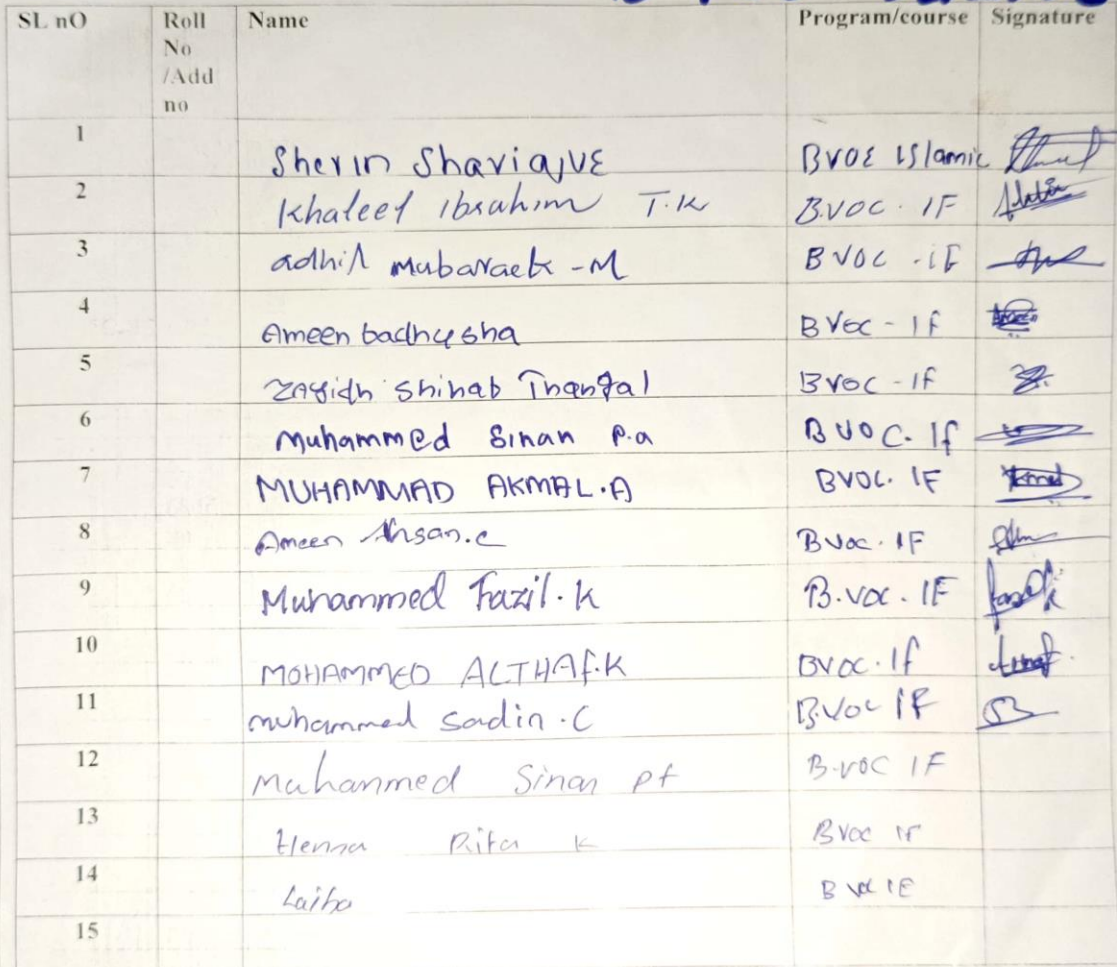 SL nO Roll No /Add no Name Program/course Signature
1 Sherin BVOE Islamic
2 Khaleel Ibrahim T.K B.VOC. IF
3 adhil mubaraek -M BVOC -IF
4 Ameen badhusha BVoc - If
5 shihab Thangal BVOC -If
6 Muhammed Sinan P.a BVOC. If
7 MUHAMMAD AKMAL.A BVOC. IF
8 Ameen Ahsan.c BVoc. IF
9 Muhammed Fazil.k B.voc. IF
10 MOHAMMED ALTHAf.K BVOC. If
11 muhammed sadin.C B.Voc IF
12 Muhammed Sinan pt B.vOC IF
13 Henna Rifa K BVOC IF
14 Laiba B VOC IF
15